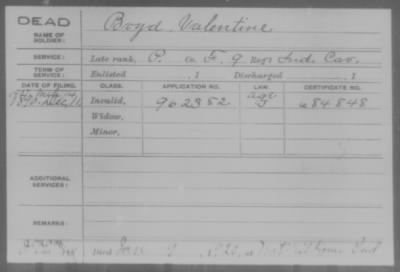 DEAD
NAME OF SOLDIER: Boyd, Valentine
SERVICE: Late rank, P. Co. F, 9 Reg't Ind. Cav.
TERM OF SERVICE: Enlisted , 1 Discharged , 1
DATE OF FILING. CLASS. APPLICATION NO. LAW. CERTIFICATE NO.
1890. Dec. 11 Invalid, 962382 684848
Widow,
Minor,
ADDITIONAL SERVICES:
REMARKS:
died at Home Ind